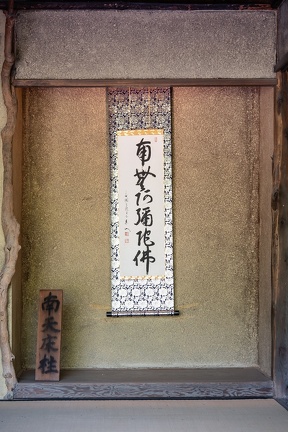 南無阿彌陀佛
南天床柱